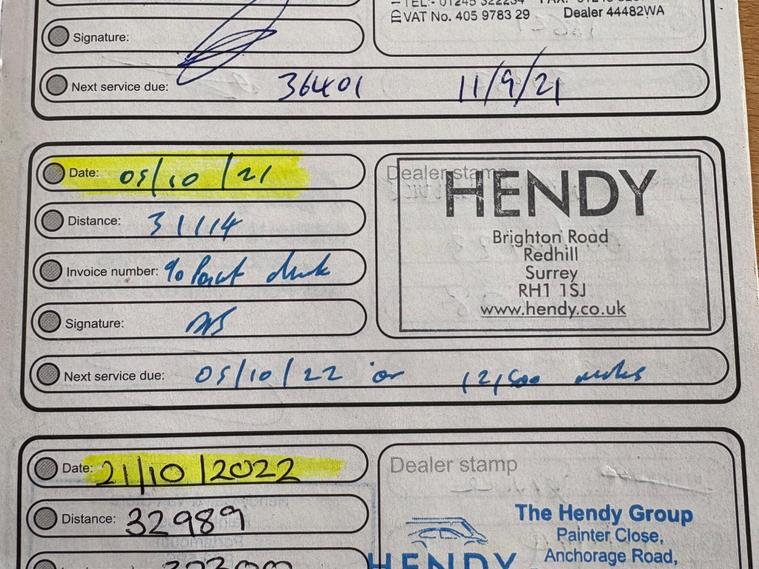 VAT No. 405 9783 29 Dealer 44482WA
Signature:
Next service due: 36401 11/9/21
Date: 05/10/21
Dealer stamp
HENDY
Distance: 31114
Brighton Road
Redhill
Invoice number:
Surrey
RH1 1SJ
Signature:
www.hendy.co.uk
Next service due: 05/10/22 or 12,500 miles
Date: 21/10/2022
Dealer stamp
The Hendy Group
Distance: 32989
Painter Close,
HENDY
Anchorage Road,